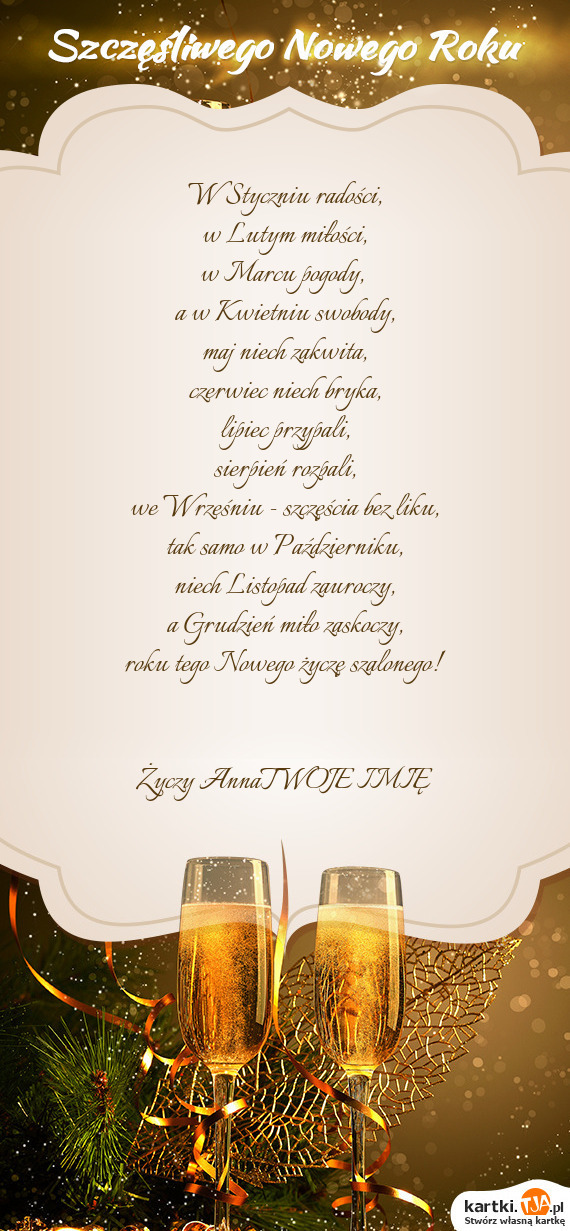 Szczęśliwego Nowego Roku
W Styczniu radości,
w Lutym miłości,
w Marcu pogody,
a w Kwietniu swobody,
maj niech zakwita,
czerwiec niech bryka,
lipiec przypali,
sierpień rozpali,
we Wrześniu - szczęścia bez liku,
tak samo w Październiku,
niech Listopad zauroczy,
a Grudzień miło zaskoczy,
roku tego Nowego życzę szalonego!
Życzy AnnaTWOJE IMIĘ
kartki.TJA.pl
Stwórz własną kartkę